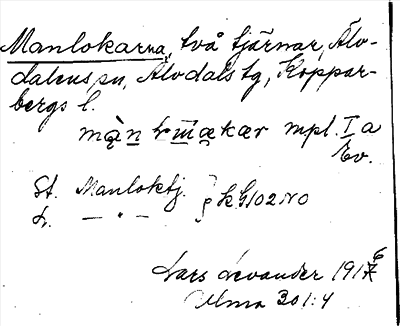 Manlokarna, två tjärnar, Älv-
dalens sn, Älvdals tg, Koppar-
bergs l.
mpl. I a
Ev.
St. Manloktj.
L. — " —
k bl 102 NO
Lars Levander 1916
Ulma 301:4